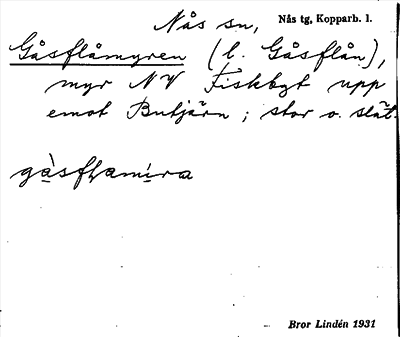 Nås sn, Nås tg, Kopparb. l.
Gåsflåmyren (l. Gåsflån),
myr NV Fiskbyt upp
emot Butjärn; stor o. slät.
gàsflamira
Bror Lindén 1931